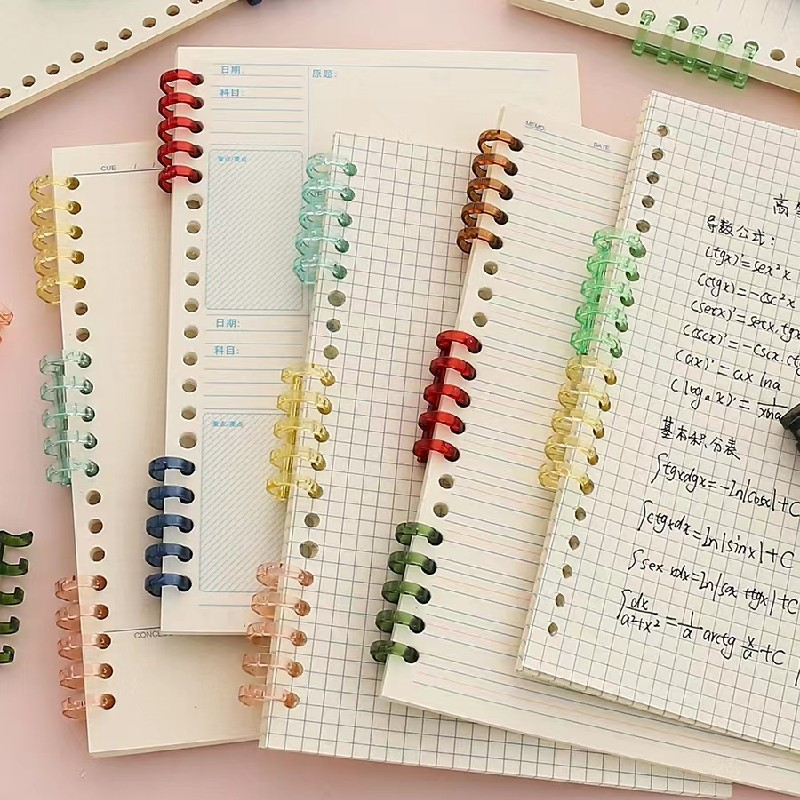 CUE / /
日期:
科目:
原题:
日期:
科目:
MEMO
DATE
导数公式:
(tgx)'=sec²x
(ctgx)'=-csc²x
(secx)'=secx·tgx
(cscx)'=-cscx·ctg
(aˣ)'=aˣ lna
(logₐx)'=1/xlna
基本积分表
∫tgxdgx=-ln|cosx|+C
∫ctgxdx=ln|sinx|+C
∫sex xdx=ln|sex +tgx|+C
∫dx/a²+x²=1/a arctg x/a+C